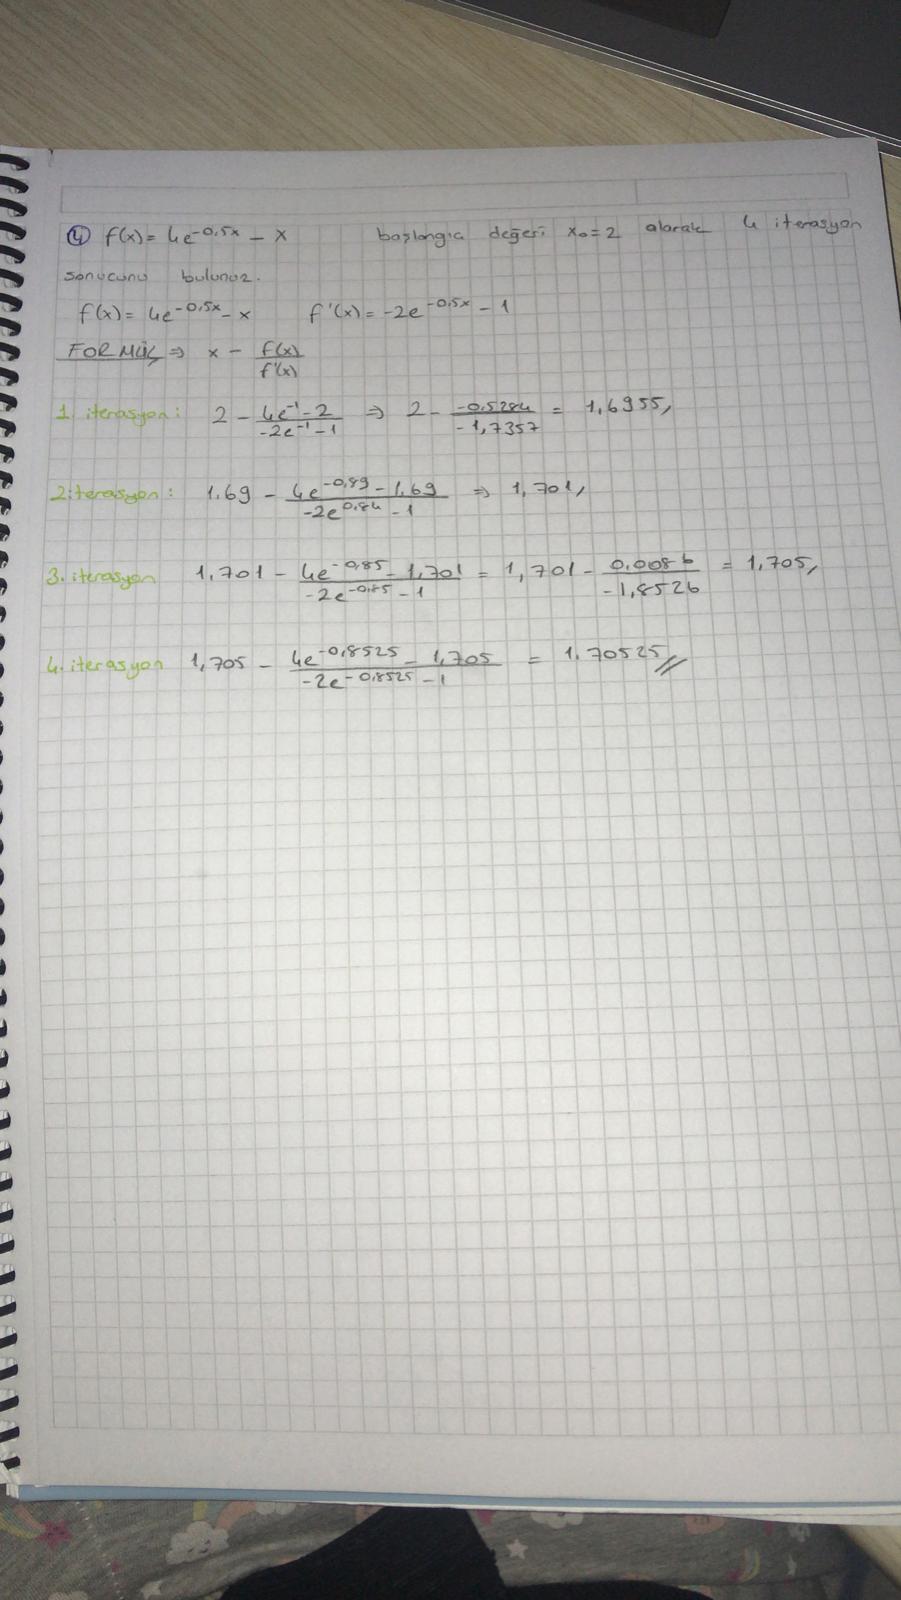 4 f(x) = 4e^-0,5x - x başlangıc değeri x₀ = 2 alarak 4 iterasyon
sonucunu bulunuz.
f(x) = 4e^-0,5x - x f'(x) = -2e^-0,5x - 1
FORMÜL ⇒ x - f(x)/f'(x)
1. iterasyon: 2 - (4e^-1 - 2)/(-2e^-1 - 1) ⇒ 2 - (-0.5284)/(-1,7357) = 1,6955,
2.iterasyon: 1.69 - (4e^-0,89 - 1.69)/(-2e^0,84 - 1) ⇒ 1,701,
3. iterasyon 1,701 - (4e^-0,85 - 1,701)/(-2e^-0,85 - 1) = 1,701 - (0,0086)/(-1,8526) = 1,705,
4. iterasyon 1,705 - (4e^-0,8525 - 1,705)/(-2e^-0,8525 - 1) = 1.70525//